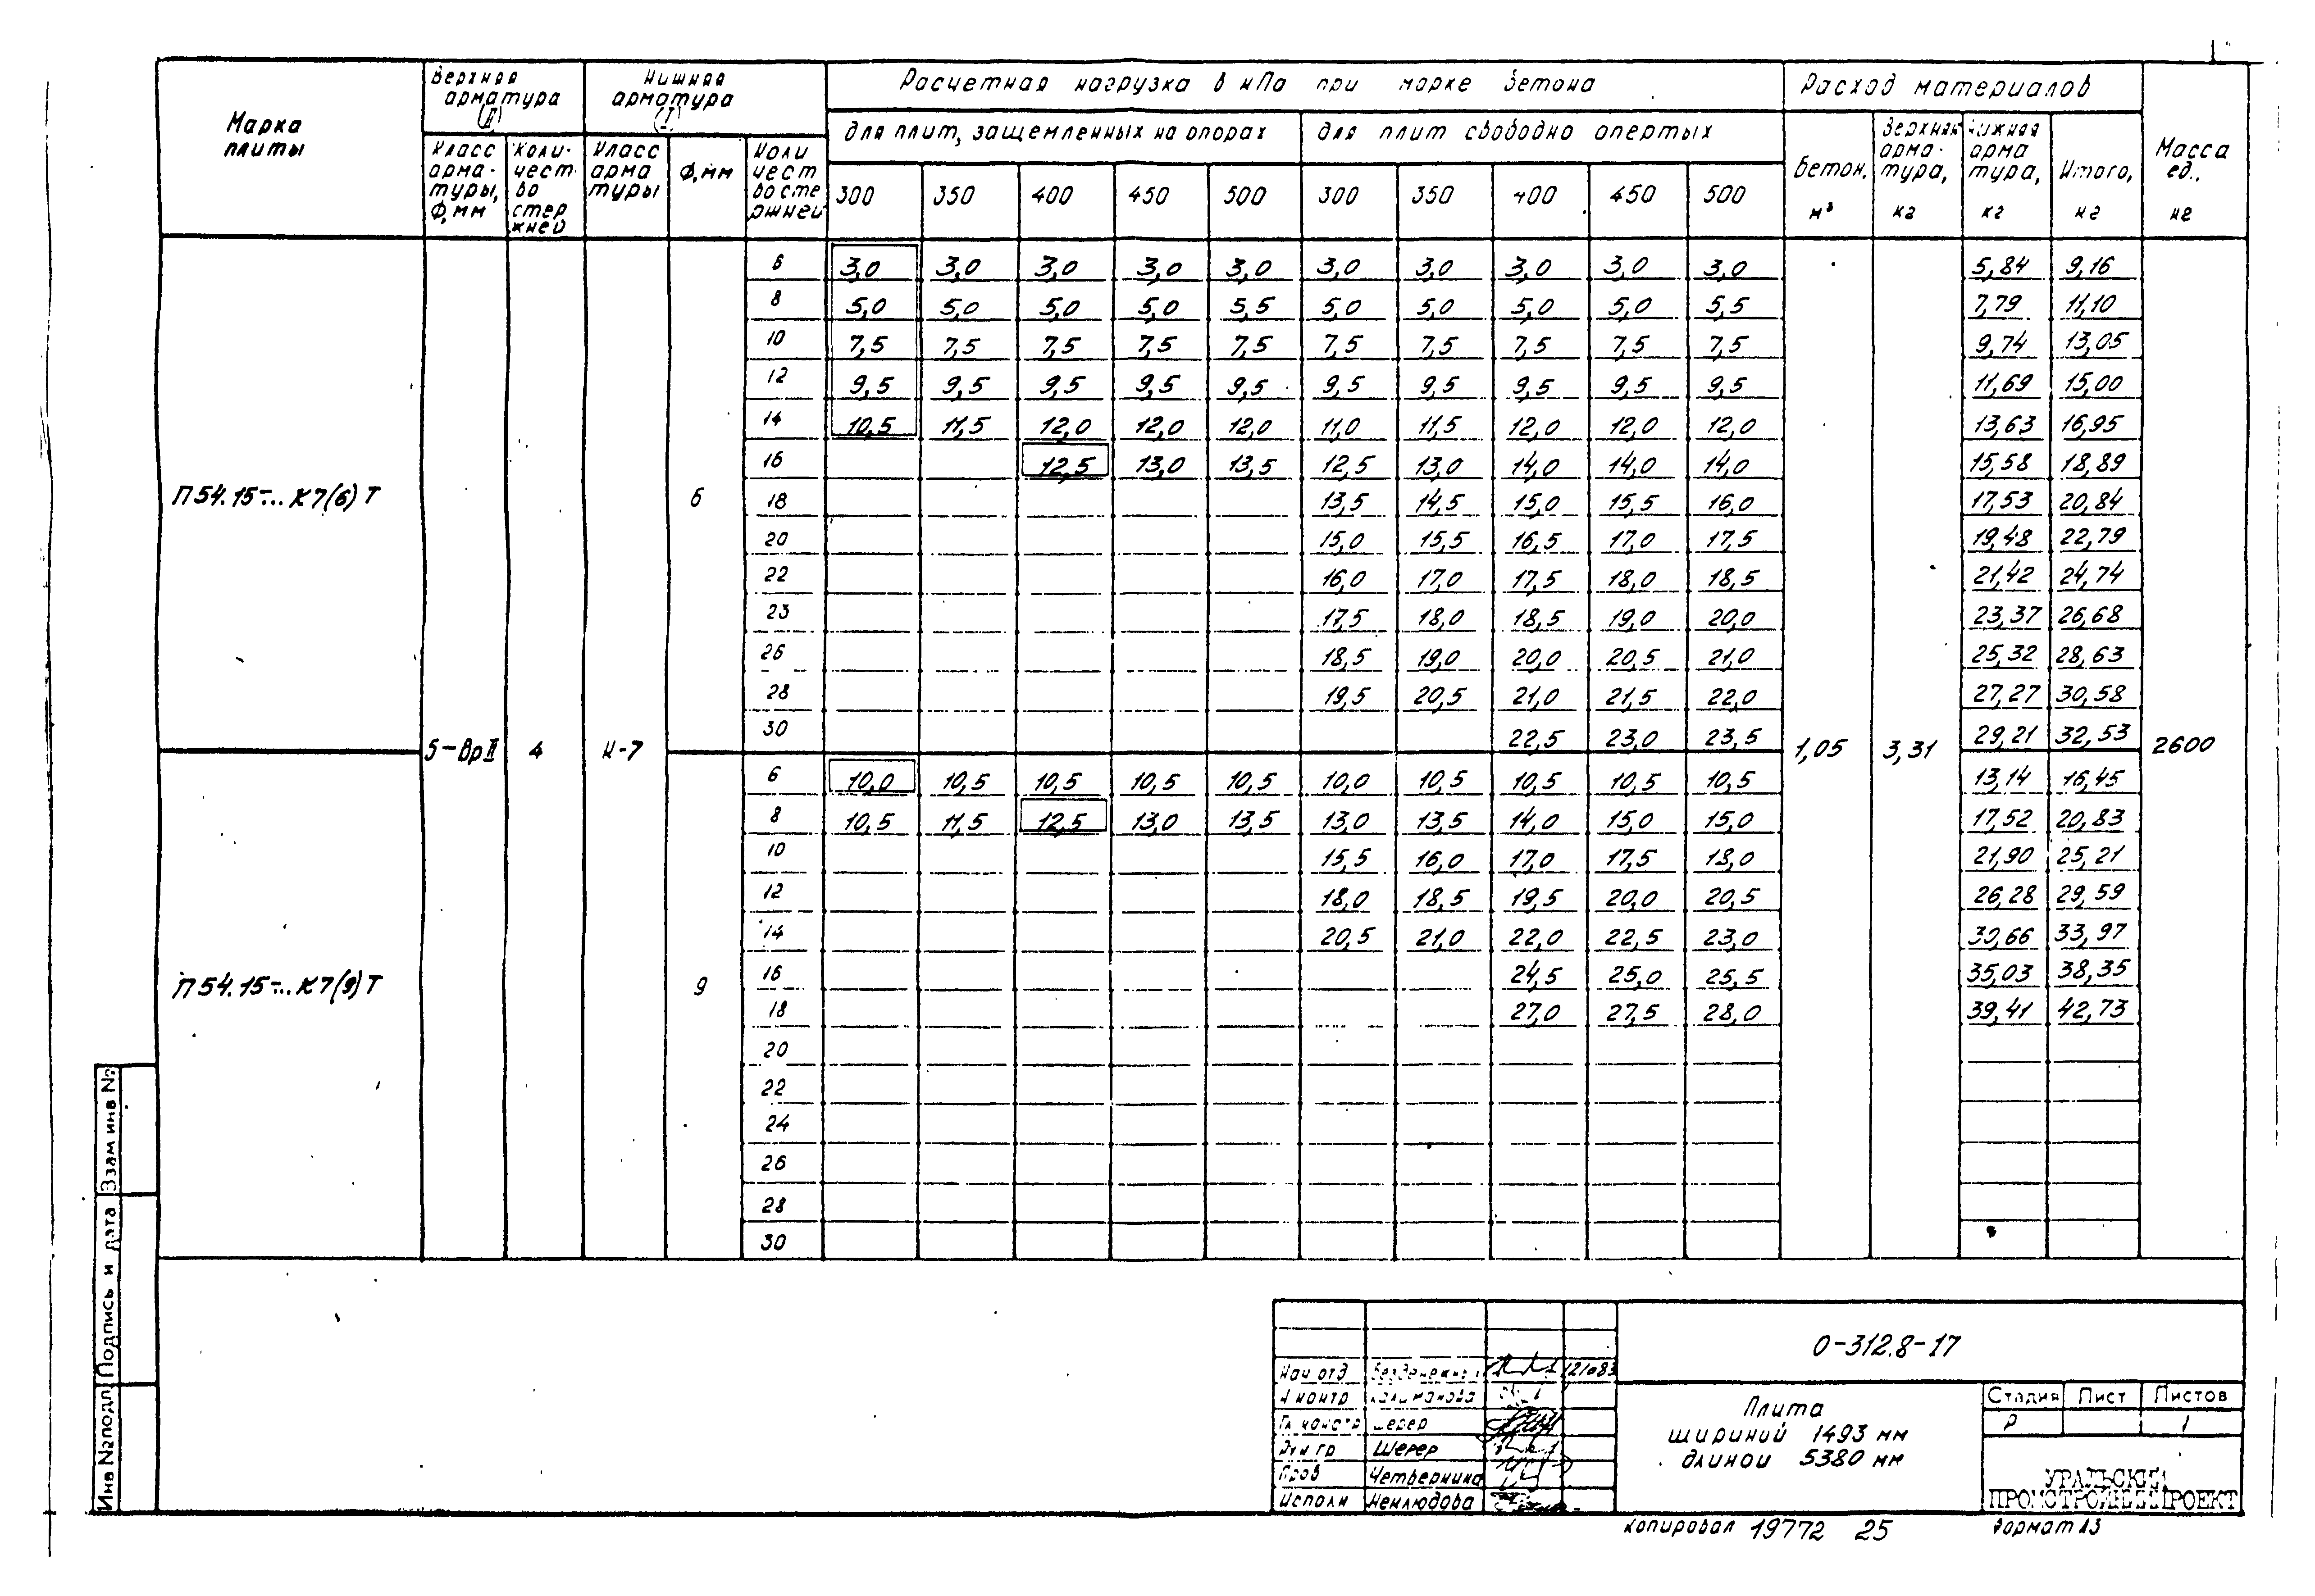 Марка плиты
Верхняя арматура (II)
Нижняя арматура (I)
Расчетная нагрузка в кПа при марке бетона
Расход материалов
Масса ед., кг
для плит, защемленных на опорах
для плит свободно опертых
Класс арма-туры, Ф,мм
Коли-чест-во стержней
Класс арматуры
Ф,мм
Количество стержней
300 350 400 450 500 300 350 400 450 500
Бетон, м³
Верхняя арма-тура, кг
Нижняя арматура, кг
Итого, кг
П54.15-... К7(6)Т
5-ВрII 4 К-7 6
1,05 3,31 2600
6 3,0 3,0 3,0 3,0 3,0 3,0 3,0 3,0 3,0 3,0 5,84 9,16
8 5,0 5,0 5,0 5,0 5,5 5,0 5,0 5,0 5,0 5,5 7,79 11,10
10 7,5 7,5 7,5 7,5 7,5 7,5 7,5 7,5 7,5 7,5 9,74 13,05
12 9,5 9,5 9,5 9,5 9,5 9,5 9,5 9,5 9,5 9,5 11,69 15,00
14 10,5 11,5 12,0 12,0 12,0 11,0 11,5 12,0 12,0 12,0 13,63 16,95
16 12,5 13,0 13,5 12,5 13,0 14,0 14,0 14,0 15,58 18,89
18 13,5 14,5 15,0 15,5 16,0 17,53 20,84
20 15,0 15,5 16,5 17,0 17,5 19,48 22,79
22 16,0 17,0 17,5 18,0 18,5 21,42 24,74
23 17,5 18,0 18,5 19,0 20,0 23,37 26,68
26 18,5 19,0 20,0 20,5 21,0 25,32 28,63
28 19,5 20,5 21,0 21,5 22,0 27,27 30,58
30 22,5 23,0 23,5 29,21 32,53
П54.15-... К7(9)Т
9
6 10,0 10,5 10,5 10,5 10,5 10,0 10,5 10,5 10,5 10,5 13,14 16,45
8 10,5 11,5 12,5 13,0 13,5 13,0 13,5 14,0 15,0 15,0 17,52 20,83
10 15,5 16,0 17,0 17,5 18,0 21,90 25,21
12 18,0 18,5 19,5 20,0 20,5 26,28 29,59
14 20,5 21,0 22,0 22,5 23,0 30,66 33,97
16 24,5 25,0 25,5 35,03 38,35
18 27,0 27,5 28,0 39,41 42,73
20
22
24
26
28
30
Инв №подл Подпись и дата Взам инв №
О-312.8-17
Нач отд
Н контр Калиманова
Гл констр Шерер
Рук гр Шерер
Пров Четверкина
Исполн Неклюдова
Плита
шириной 1493 мм
длиной 5380 мм
Стадия Лист Листов
Р 1
УРАЛЬСКИЙ
ПРОМСТРОЙНИИПРОЕКТ
Копировал 19772 25 Формат А3